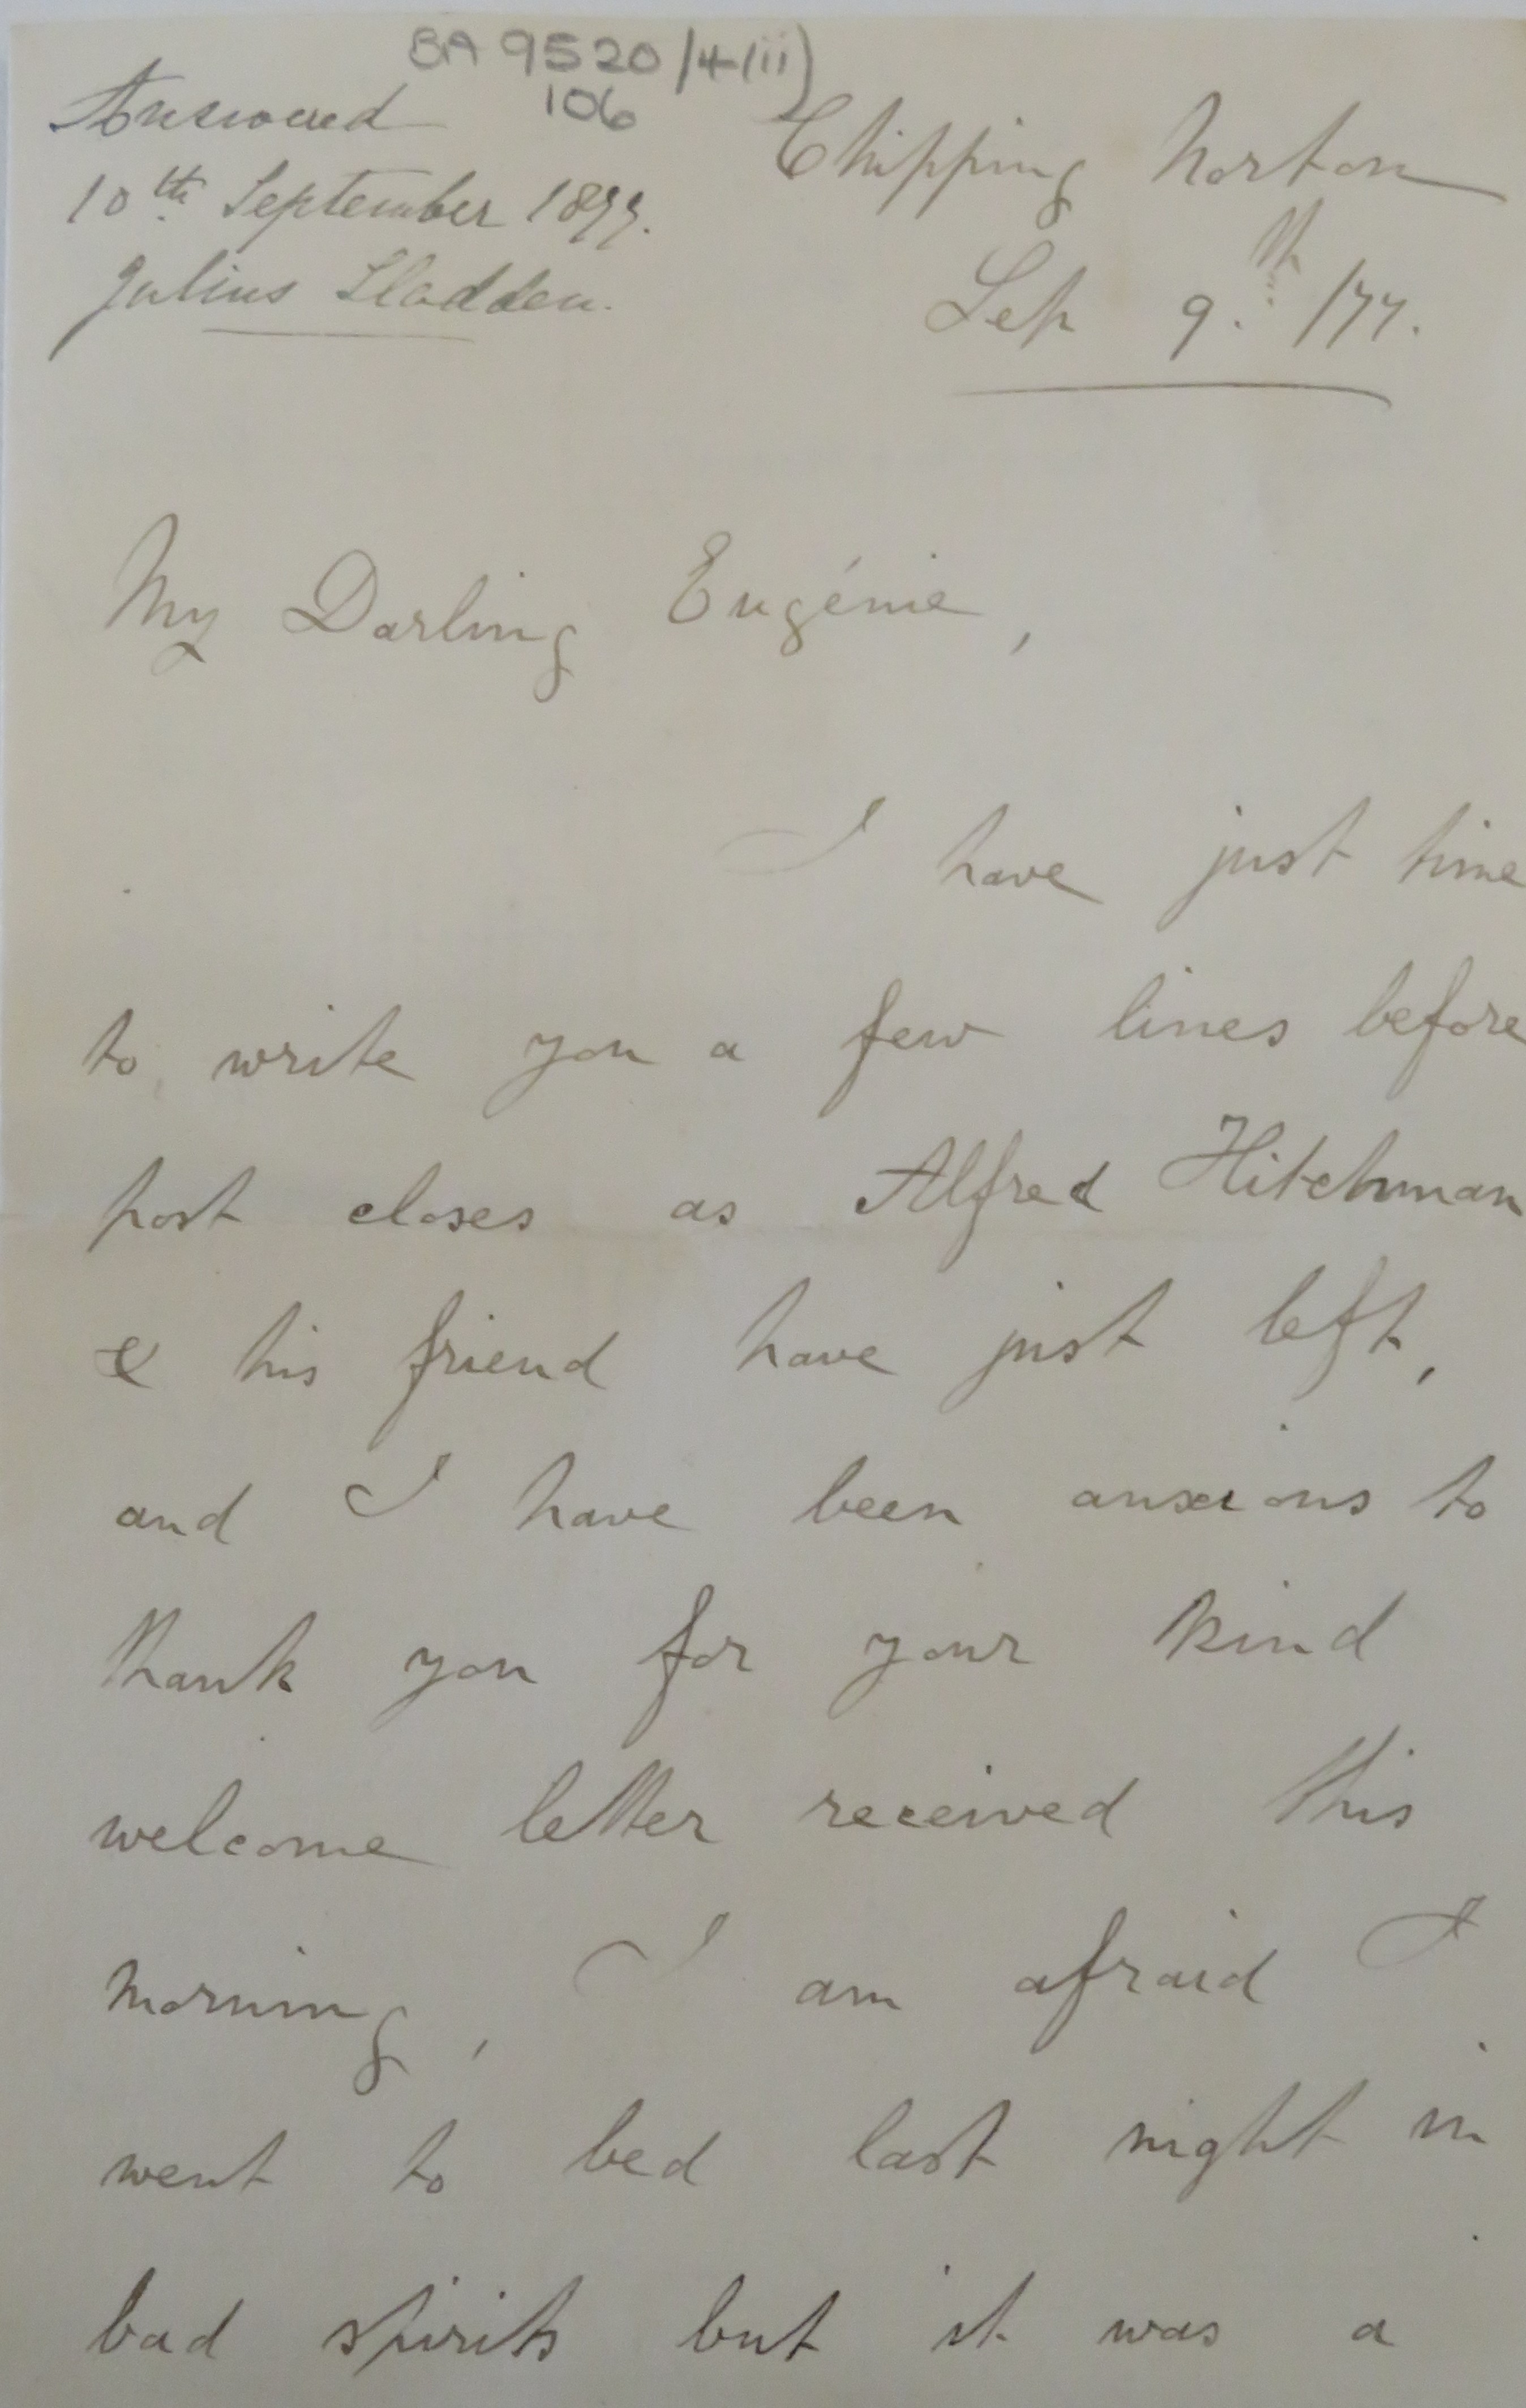 BA 9520/4(ii)
106
Answered
10th September 1877.
Julius Sladden.
Chipping Norton
Sep 9th /77.
My Darling Eugénie,
I have just time
to write you a few lines before
post closes as Alfred Hitchman
& his friend have just left,
and I have been anxious to
thank you for your kind
welcome letter received this
morning, I am afraid I
went to bed last night in
bad spirits but it was a